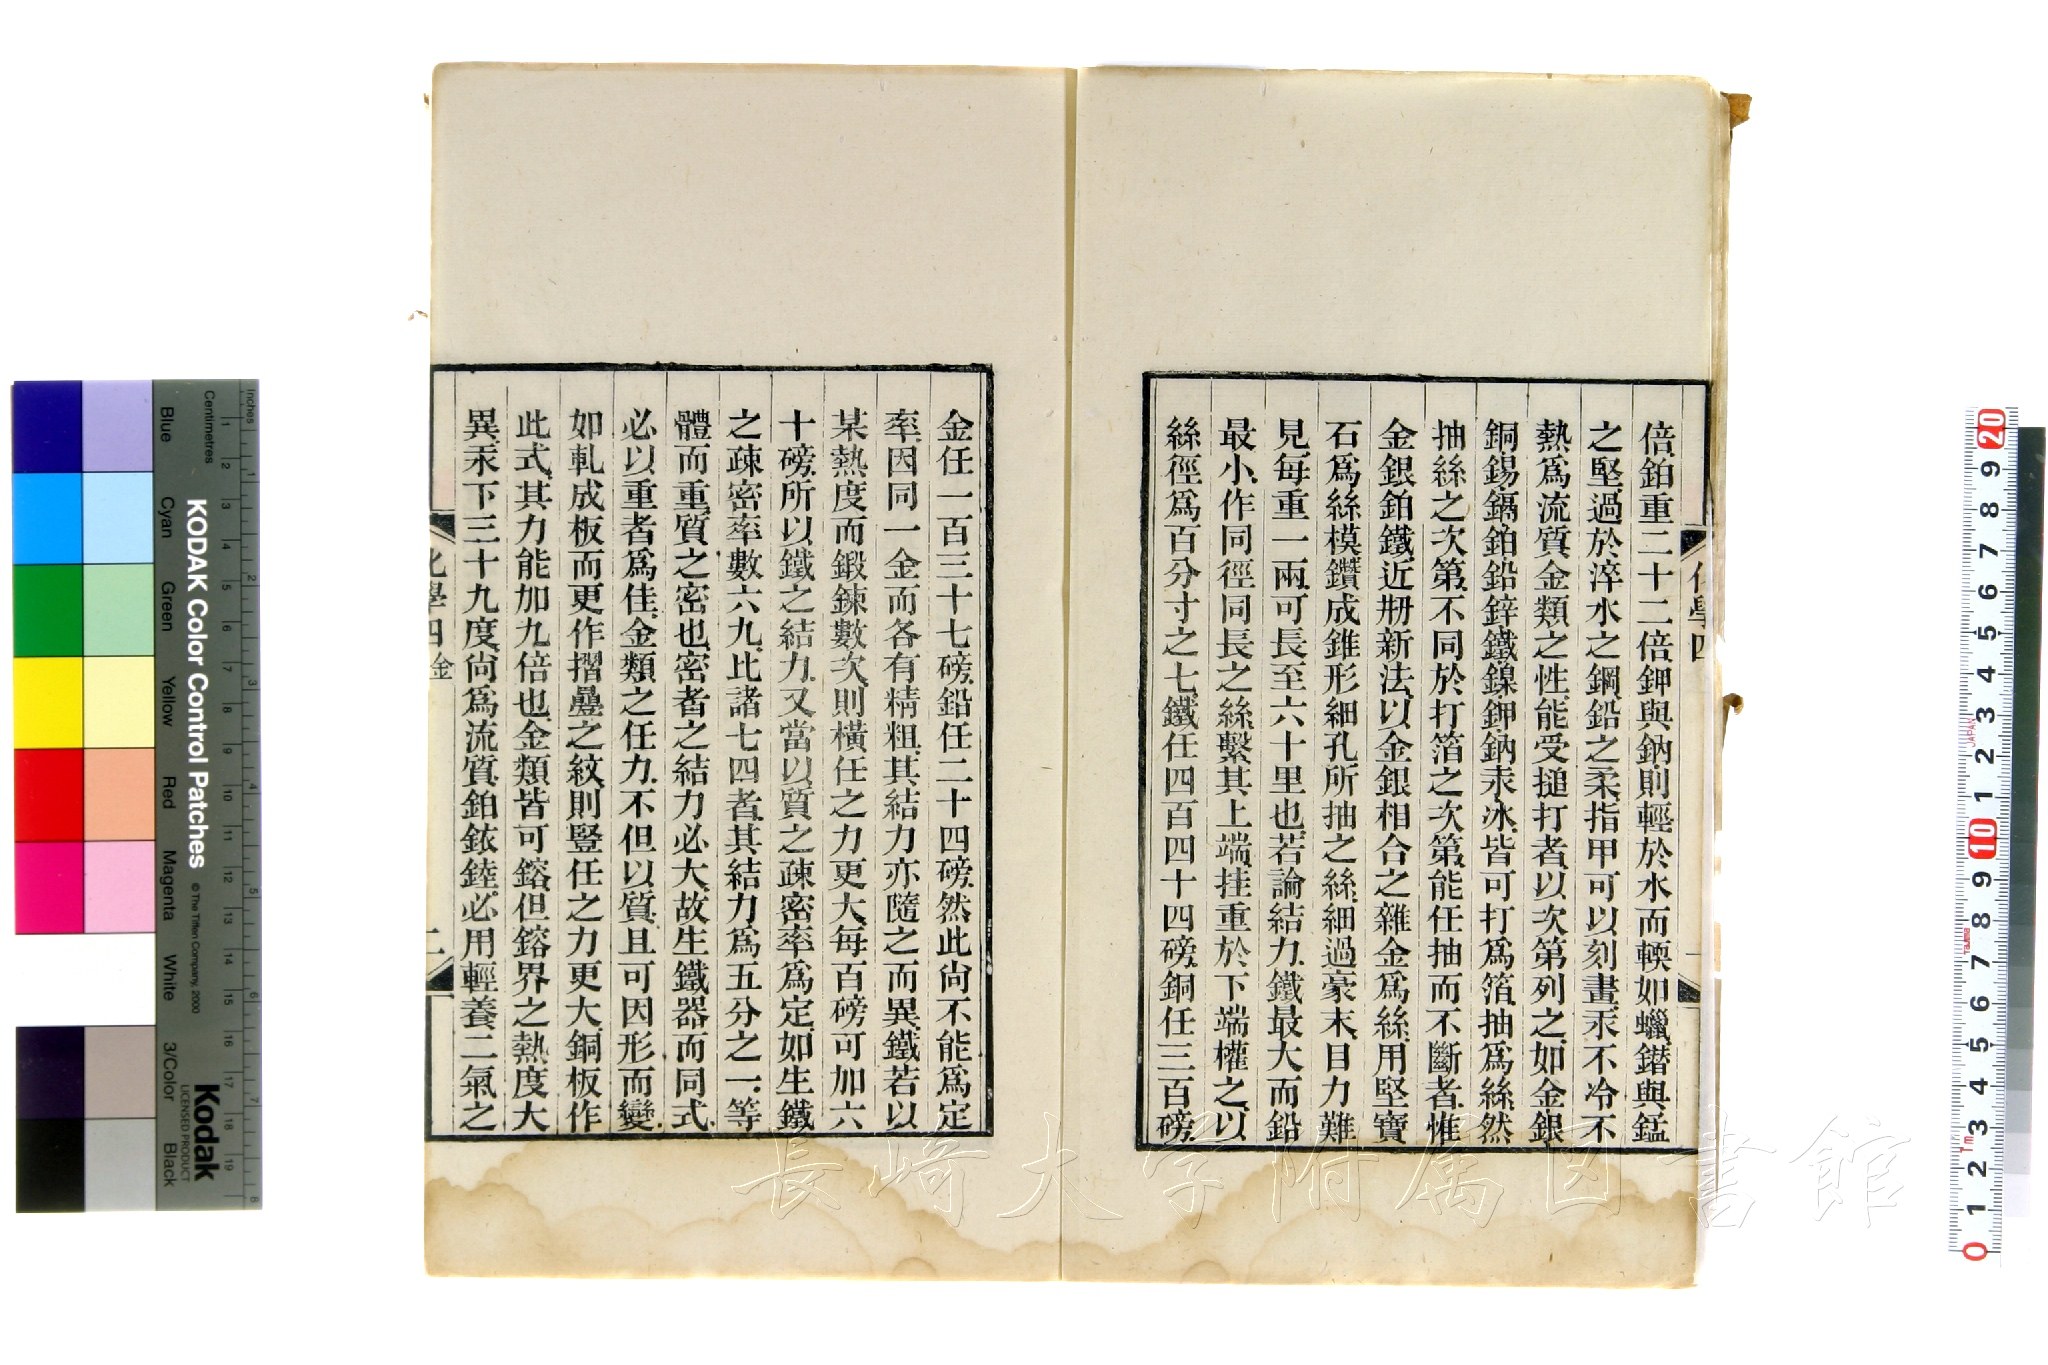 倍鉑重二十二倍鉀與鈉則輕於水而輭如蠟鐟與錳
之堅過於淬水之鋼鉛之柔指甲可以刻畫汞不冷不
熱爲流質金類之性能受搥打者以次第列之如金銀
銅錫鎘鉑鉛鋅鐵鎳鉀鈉汞冰皆可打爲箔抽爲絲然
抽絲之次第不同於打箔之次第能任抽而不斷者惟
金銀鉑鐵近刱新法以金銀相合之雜金爲絲用堅寶
石爲絲模鑽成錐形細孔所抽之絲細過豪末目力難
見每重一兩可長至六十里也若論結力鐵最大而鉛
最小作同徑同長之絲繫其上端挂重於下端權之以
絲徑爲百分寸之七鐵任四百四十四磅銅任三百磅
化學四
一
金任一百三十七磅鉛任二十四磅然此尙不能爲定
率因同一金而各有精粗其結力亦隨之而異鐵若以
某熱度而鍛鍊數次則橫任之力更大每百磅可加六
十磅所以鐵之結力又當以質之疎密率爲定如生鐵
之疎密率數六九比諸七四者其結力爲五分之一等
體而重質之密也密者之結力必大故生鐵器而同式
必以重者爲佳金類之任力不但以質且可因形而變
如軋成板而更作摺疊之紋則豎任之力更大銅板作
此式其力能加九倍也金類皆可鎔但鎔界之熱度大
異汞下三十九度尙爲流質鉑銥錴必用輕養二氣之
化學四 金
二
長崎大学附属図書館
KODAK Color Control Patches
© The Tiffen Company, 2000
Kodak
LICENSED PRODUCT
Inches
Centimetres
Blue
Cyan
Green
Yellow
Red
Magenta
White
3/Color
Black
JAPAN